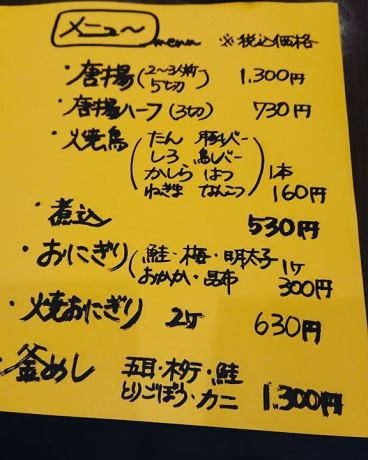 メニュ〜
menu ※税込価格
・唐揚(2〜3人前 5切) 1.300円
・唐揚ハーフ(3切) 730円
・火焼鳥(たん 豚レバー
しろ 鳥レバー
かしら はつ
ねぎま なんこつ) 1本
160円
・煮込 530円
・おにぎり(鮭・梅・明太子 1ヶ
おかか・昆布 300円
・焼おにぎり 2ヶ 630円
・釜めし 五目・木竹・鮭
とりごぼう・カニ 1.300円